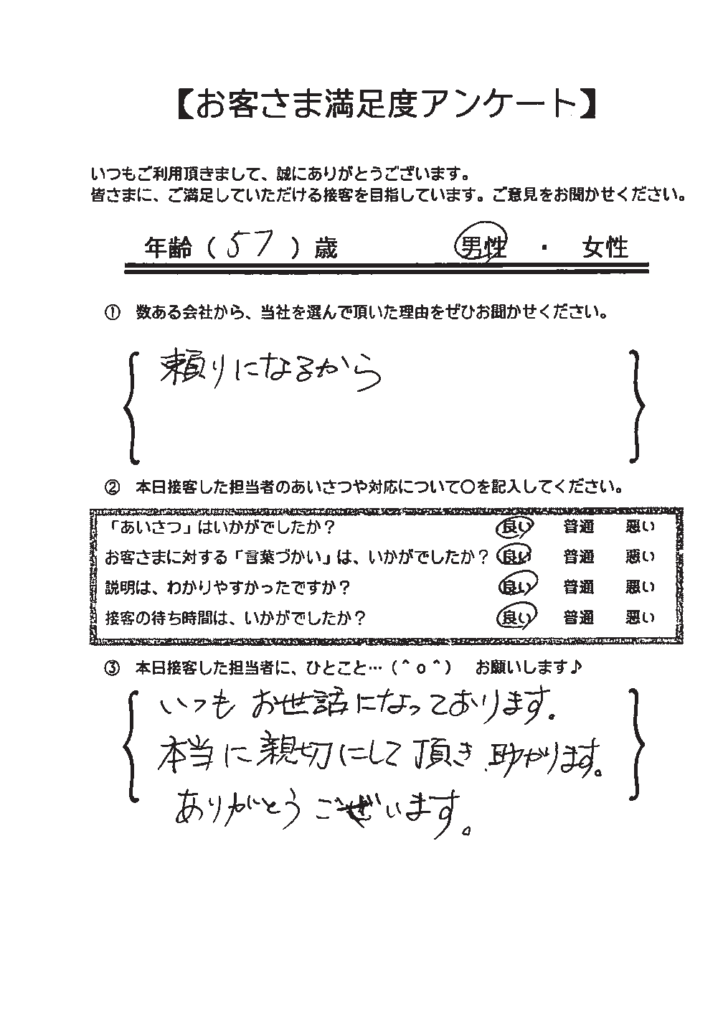 【お客さま満足度アンケート】
いつもご利用頂きまして、誠にありがとうございます。
皆さまに、ご満足していただける接客を目指しています。ご意見をお聞かせください。
年齢（57）歳　男性・女性
① 数ある会社から、当社を選んで頂いた理由をぜひお聞かせください。
頼りになるから
② 本日接客した担当者のあいさつや対応について〇を記入してください。
「あいさつ」はいかがでしたか？　良い　普通　悪い
お客さまに対する「言葉づかい」は、いかがでしたか？　良い　普通　悪い
説明は、わかりやすかったですか？　良い　普通　悪い
接客の待ち時間は、いかがでしたか？　良い　普通　悪い
③ 本日接客した担当者に、ひとこと…（＾ｏ＾）　お願いします♪
いつもお世話になっております。
本当に親切にして頂き助かります。
ありがとうございます。